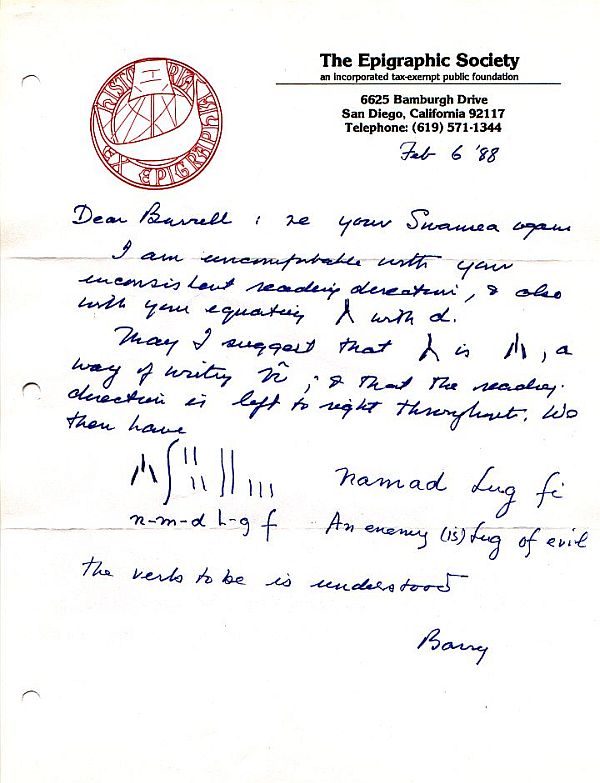 HISTORIA EX EPIGRAPHIS
The Epigraphic Society
an incorporated tax-exempt public foundation
6625 Bamburgh Drive
San Diego, California 92117
Telephone: (619) 571-1344
Feb 6 '88
Dear Burrell : re your Swamea again
I am uncomfortable with your
inconsistent reading direction, & also
with your equating with d.
May I suggest that is , a
way of writing ; & that the reading
direction is left to right throughout. We
then have
namad Lug fi
n-m-d L-g f An enemy (is) Lug of evil
the verb to be is understood
Barry